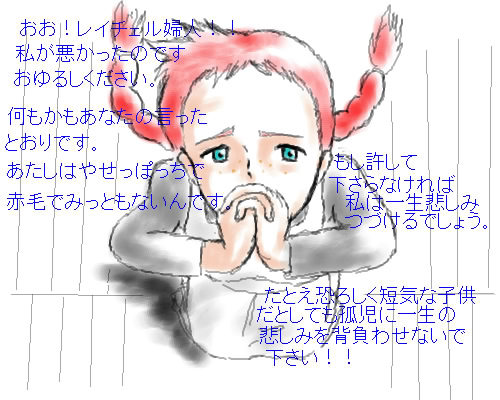 おお！レイチェル婦人！！
私が悪かったのです
おゆるしください。
何もかもあなたの言った
とおりです。
あたしはやせっぽっちで
赤毛でみっともないんです。
もし許して
下さらなければ
私は一生悲しみ
つづけるでしょう。
たとえ恐ろしく短気な子供
だとしても孤児に一生の
悲しみを背負わせないで
下さい！！